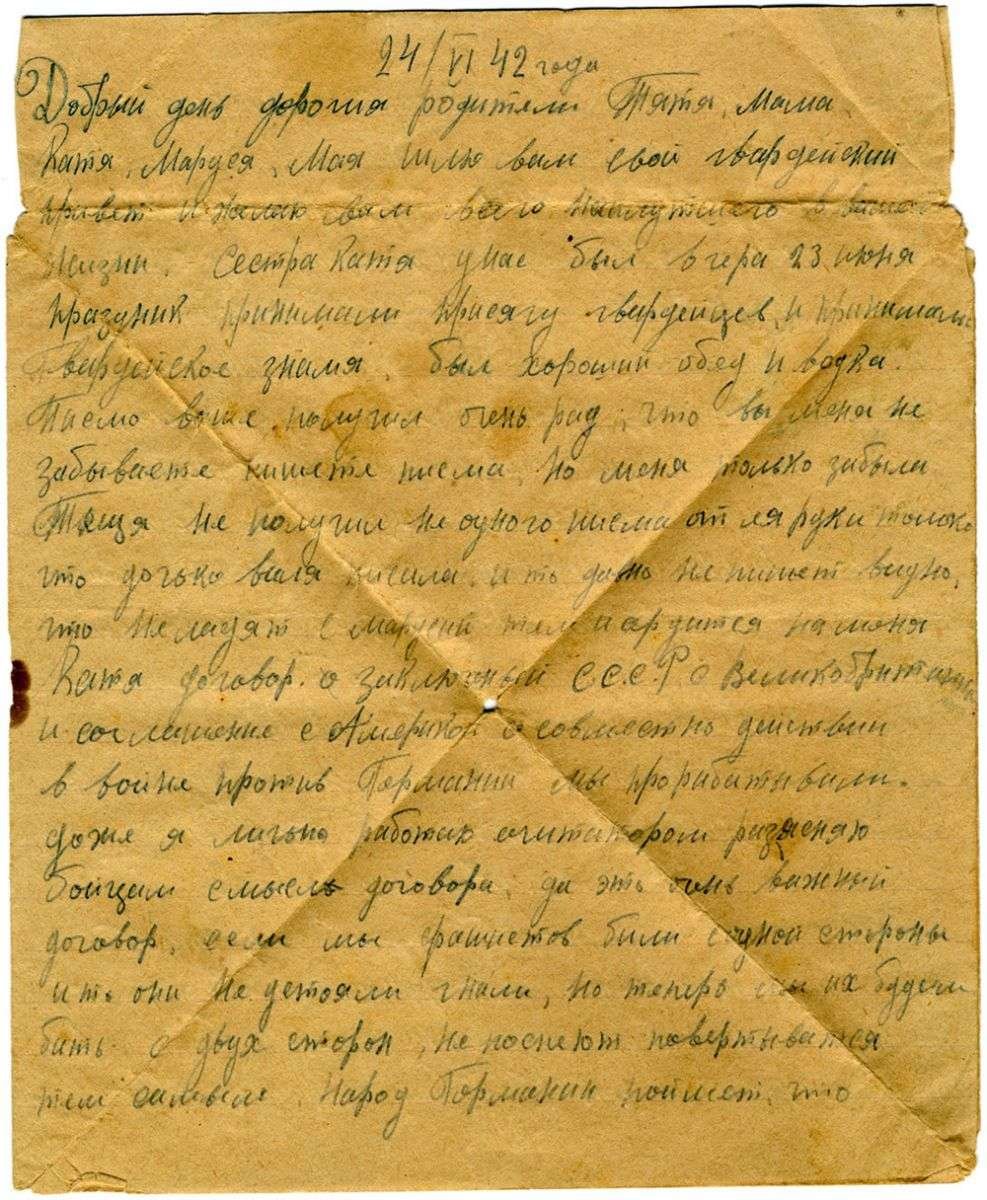 24/VI 42 года
Добрый день дорогия родители Тятя, мама,
Катя, Маруся, Мая шлю вам свой гвардейский
привет и жалаю вам всего наилутшего в вашей
жизни. Сестра Катя у нас был вчера 23 июня
праздник принимали присягу гвардейцев и принимали
Гвардейское знамя. был хороший обед и водка.
Писмо ваше получил очень рад, что вы меня не
забываете пишете писма, но меня только забыла
Тёща не получил не одного писма от ея руки толоко
что дочька Валя писала. и то давно не пишет видно,
что не ладят с Марусей тем и сердится на меня
Катя договор о заключеный С.С.С.Р с Великобританией
и соглашение с Америкой о совместно действии
в войне против Германии мы прорабатывали.
доже я лично работаю агитатором разясняю
бойцам смысл договора, да эть очень важный
договор, если мы фашистов били с одной стороны
и то они не устояли гнали, но теперь мы их будем
бить с двух сторон, не поспеют повертыватся
тем самым. Народ Германии поймет, что